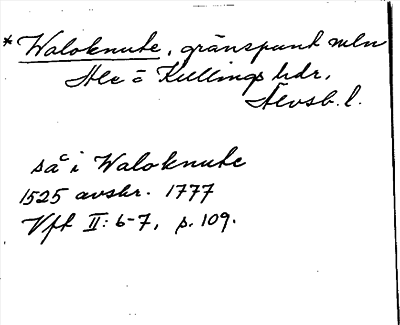 * Waloknute, gränspunkt mln
Ale o Kullings hdr,
Älvsb. l.
så i Waloknute
1525 avskr. 1777
Vft II: 6-7, p. 109.